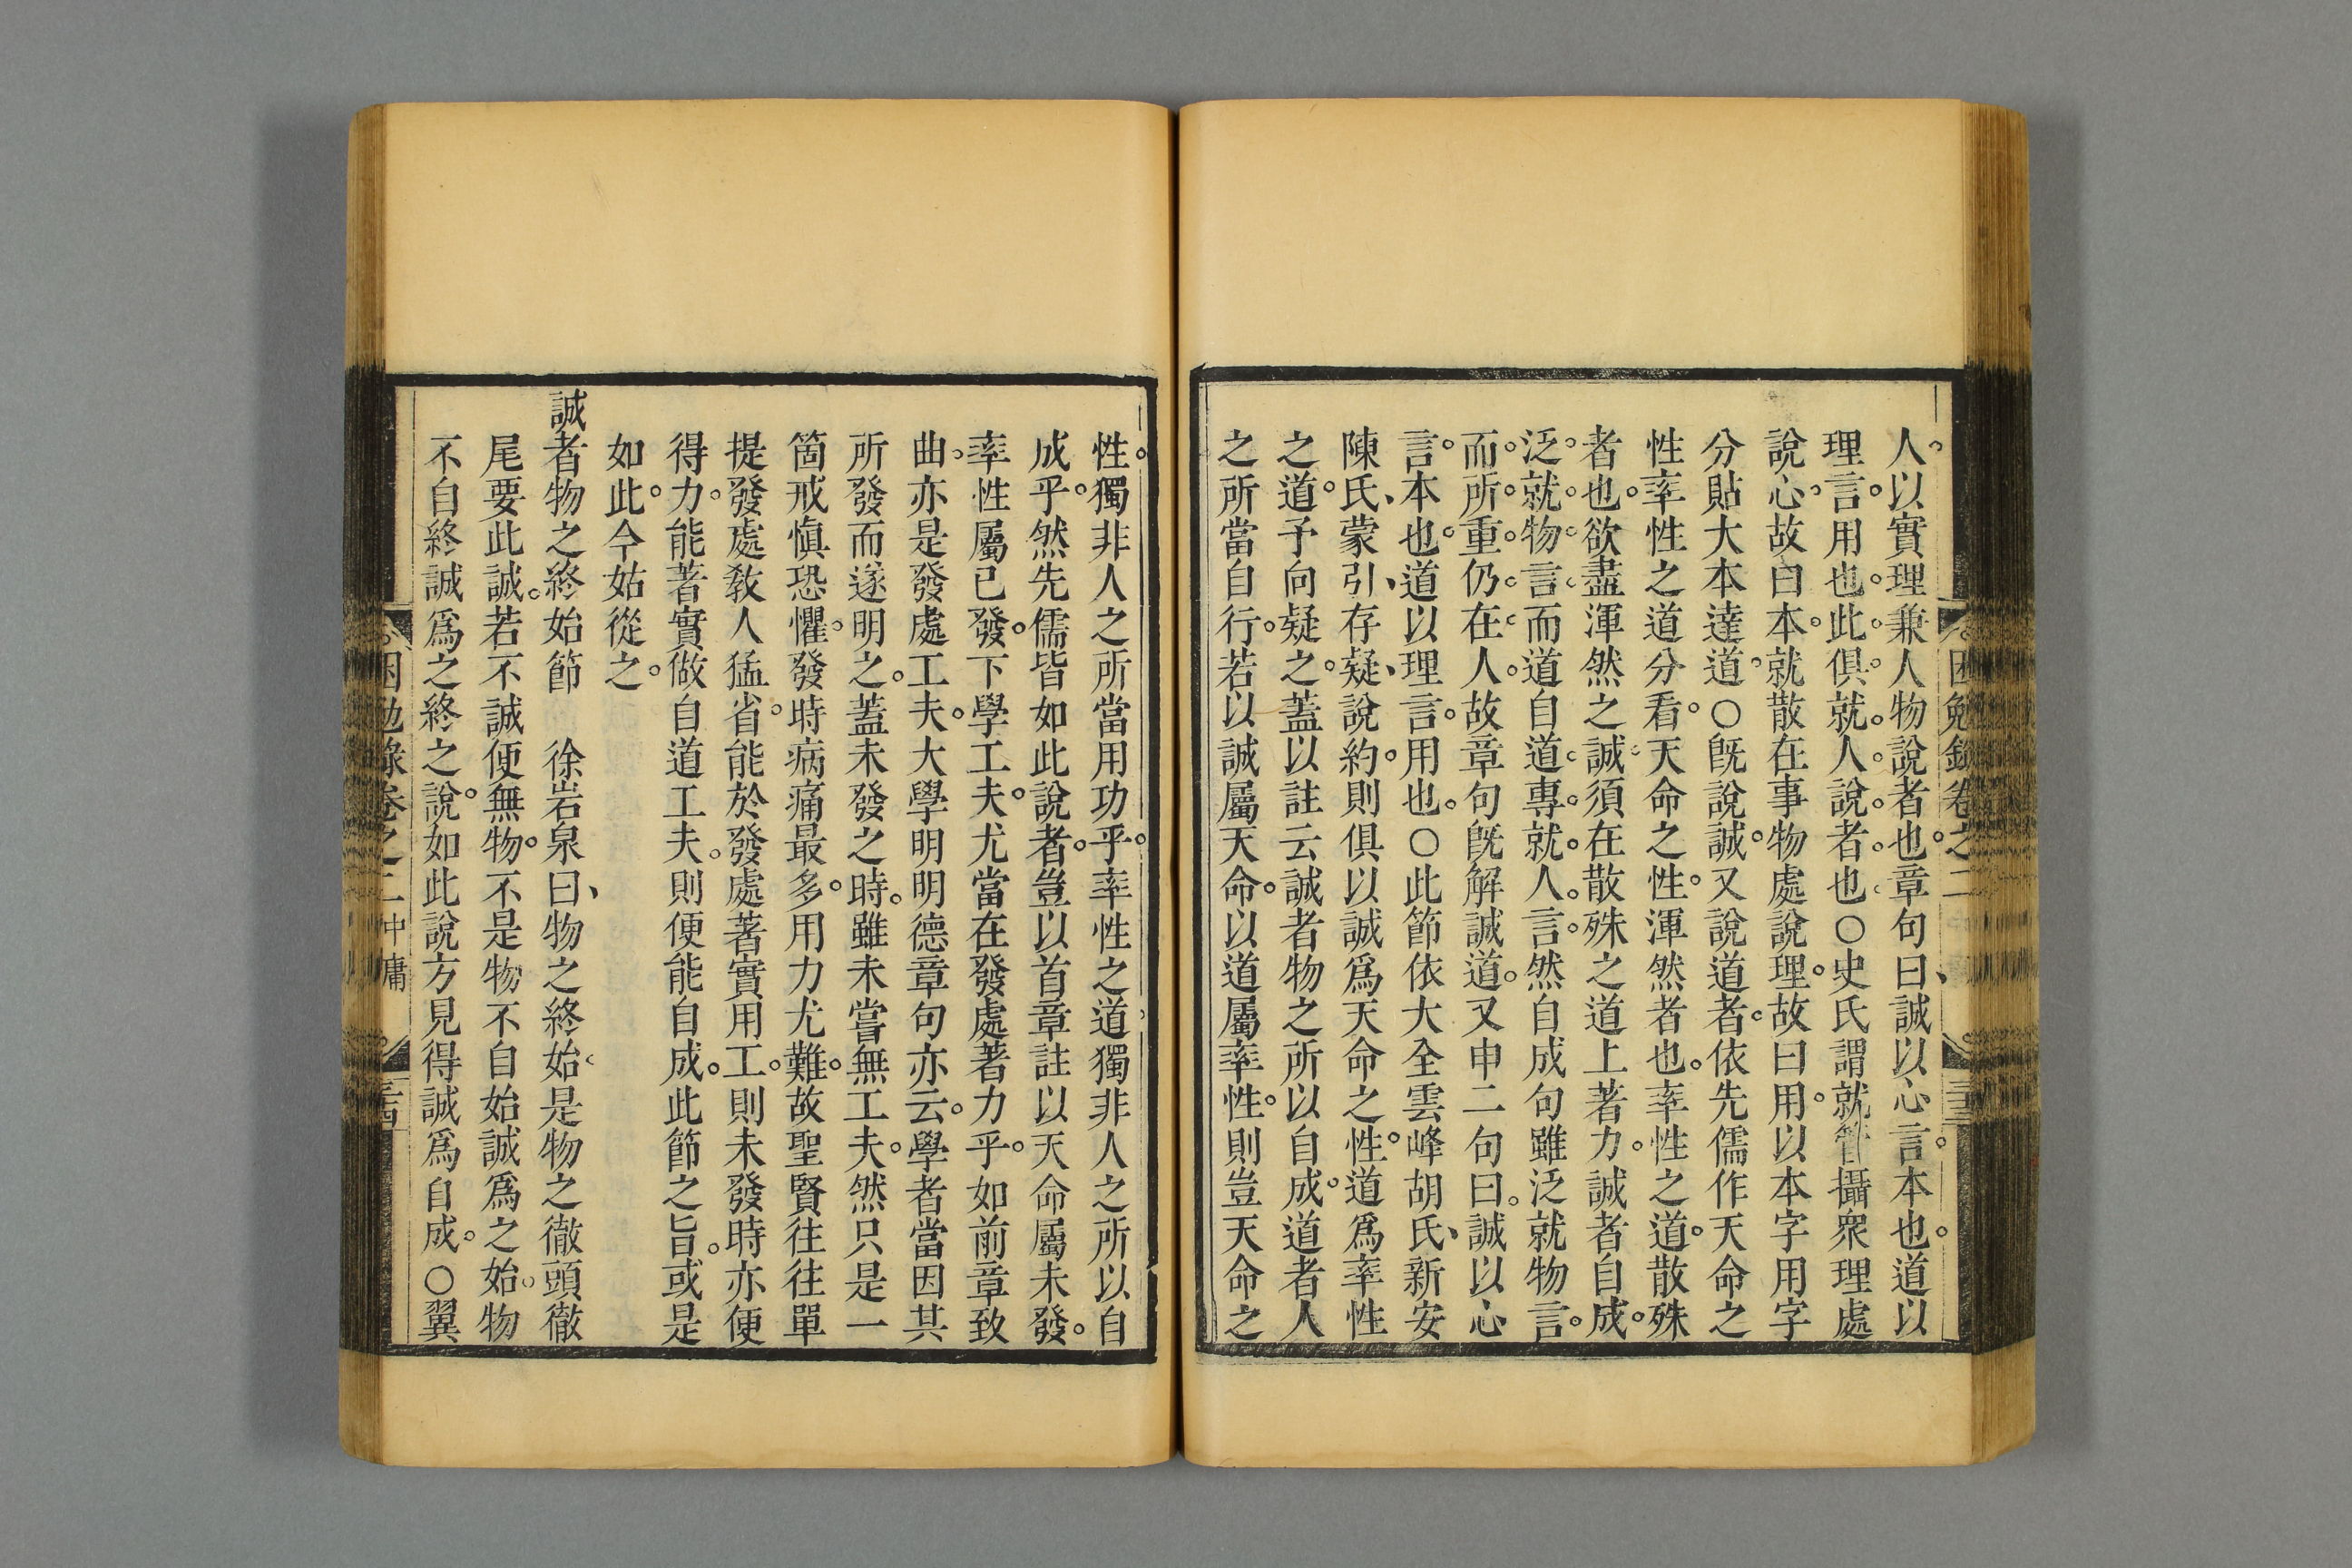 困勉錄卷之二
三三
人以實理兼人物說者也章句曰誠以心言本也道以
理言用也此俱就人說者也○史氏謂就管攝衆理處
說心故曰本就散在事物處說理故曰用以本字用字
分貼大本達道○旣說誠又說道者依先儒作天命之
性率性之道分看天命之性渾然者也率性之道散殊
者也欲盡渾然之誠須在散殊之道上著力誠者自成
泛就物言而道自道專就人言然自成句雖泛就物言
而所重仍在人故章句旣解誠道又申二句曰誠以心
言本也道以理言用也○此節依大全雲峰胡氏新安
陳氏蒙引存疑說約則俱以誠爲天命之性道爲率性
之道予向疑之蓋以註云誠者物之所以自成道者人
之所當自行若以誠屬天命以道屬率性則豈天命之
性獨非人之所當用功乎率性之道獨非人之所以自
成乎然先儒皆如此說者豈以首章註以天命屬未發
率性屬已發下學工夫尤當在發處著力乎如前章致
曲亦是發處工夫大學明明德章句亦云學者當因其
所發而遂明之蓋未發之時雖未嘗無工夫然只是一
箇戒愼恐懼發時病痛最多用力尤難故聖賢往往單
提發處敎人猛省能於發處著實用工則未發時亦便
得力能著實做自道工夫則便能自成此節之旨或是
如此今姑從之
誠者物之終始節　徐岩泉曰物之終始是物之徹頭徹
尾要此誠若不誠便無物不是物不自始誠爲之始物
不自終誠爲之終之說如此說方見得誠爲自成○翼
困勉錄卷之二 中庸
三四